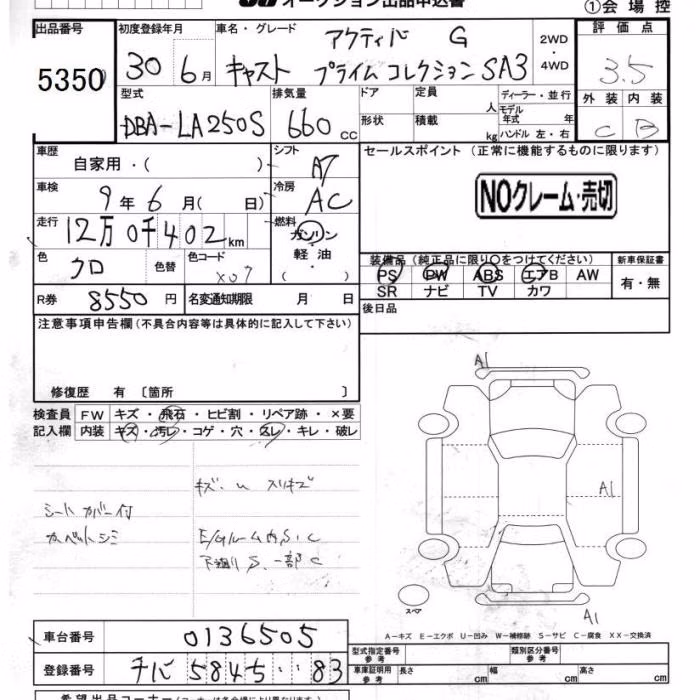 オークション出品申込書
①会場控
出品番号 初度登録年月 車名・グレード アクティバ G 2WD・4WD 評価点
5350 30 6月 キャスト プライムコレクション SA3 3.5
型式 排気量 ドア 定員 人 ディーラー・並行 外装 内装
DBA-LA250S 660cc 形状 積載 kg モデル年式 年 ハンドル 左・右 C B
車歴 シフト セールスポイント(正常に機能するものに限ります)
自家用・( ) A7
車検 冷房 NOクレーム・売切
9年6月( 日) AC
走行 燃料
12万0千402km ガソリン・軽油・( )
色 色替 色コード 装備品(純正品に限り○をつけてください) 新車保証書
クロ X07 PS PW ABS エアB AW 有・無
R券 8550円 名変通知期限 月 日 SR ナビ TV カワ
後日品
注意事項申告欄(不具合内容等は具体的に記入して下さい)
修復歴 有 〔箇所 〕
検査員 FW キズ・飛石・ヒビ割・リペア跡・×要
記入欄 内装 キズ・汚レ・コゲ・穴・スレ・キレ・破レ
A1
キズ・U スリキズ
シートカバー付
カーペットシミ
E/Gルーム内S・C
下廻りS、一部C
A1
スペア
A1
A-キズ E-エクボ U-凹み W-補修跡 S-サビ C-腐食 XX-交換済
車台番号 0136505 型式指定番号 参考 類別区分番号 参考
登録番号 チバ 584 83 車庫証明用 参考 長さ cm 幅 cm 高さ cm
希望出品コーナー